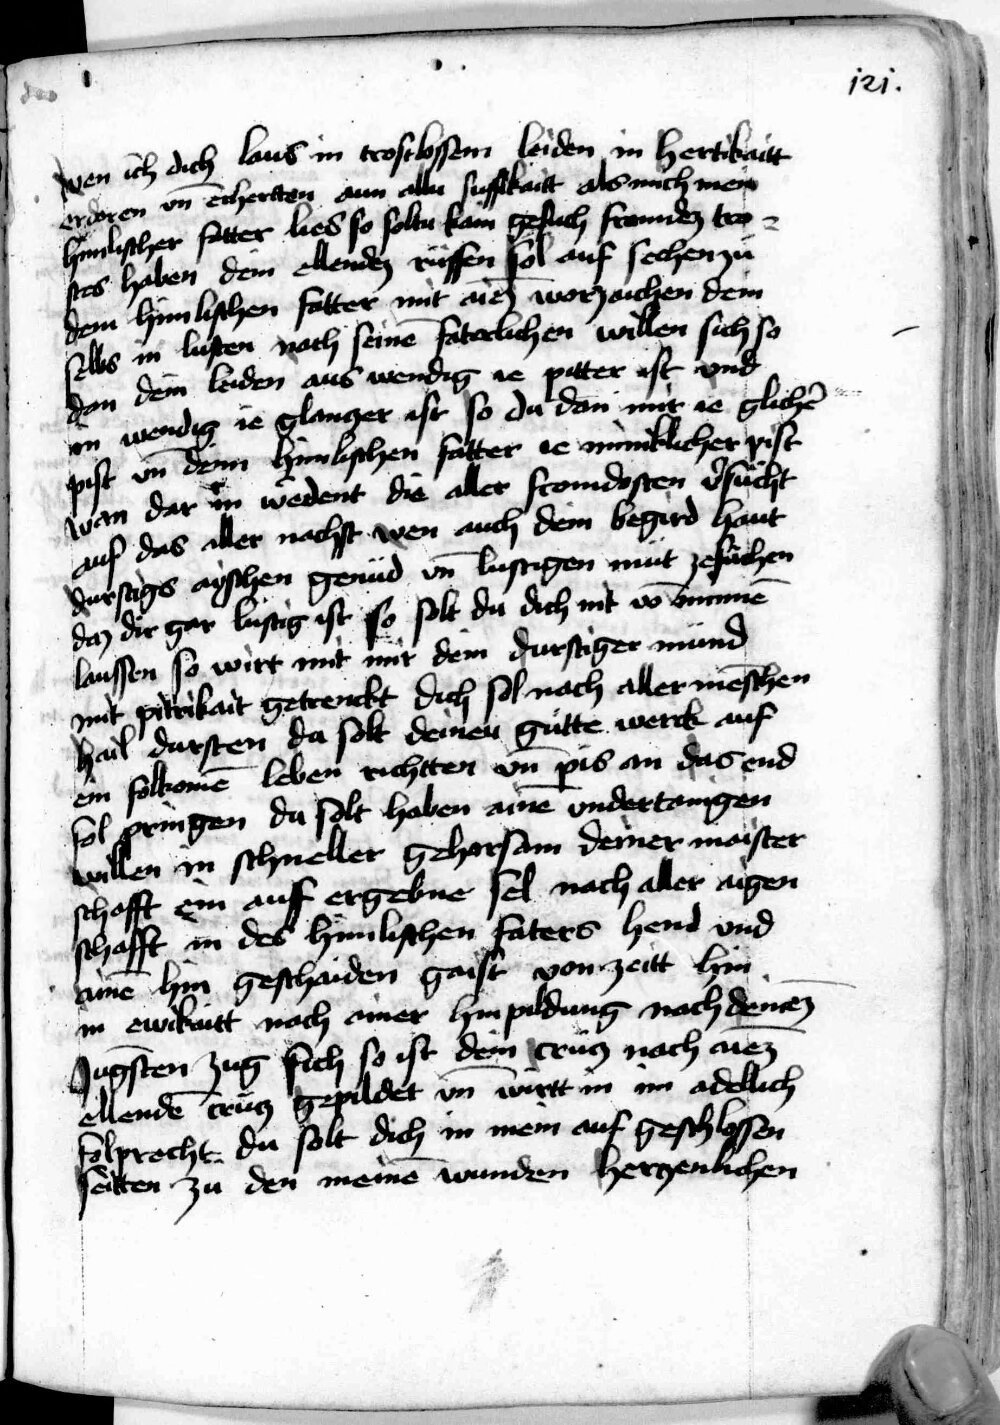 121.
wen ich dich laus in trostlossem leiden in hertikaitt
erdoren vn̄ erhertten aun allu sussikaitt als mich mein
himlischer fatter lies so soltu kain gesuch fremdez tro-
stes haben dein ellendez rüffen sol auf sechen zü
dem himlischen fatter mit aīez worzaichen dein
selbs in lusten nach seinē faterlichen willen sich so
dan dein leiden aus wendig ie pitter ist vnd
in wendig ie glanzer ist so du dan mir ie glicher
pist vn̄ deim himlischen fatter ie miniklicher pist
wan dar in wedent die aller fromdosten vsücht
auf das aller nachst wen auch dein begird haut
durstigs ayschen genüd vn̄ lustigen müt ze süchen
daz dir gar lustig ist so solt du dich nit
laussen so wirt mit mir dein durstiger mund
mit pittrikait getrenckt dich sol nach aller menschen
hail dursten du solt deineu gütte werck auf
ein folkomē leben richtten vn̄ pis an das end
fol pringen du solt haben ainē vndertanigen
willen in schneller gehorsam deiner maister
schafft ein auff ergebne sel nach aller aigen
schafft in des himlischen faters hend vnd
ainē hin geschaiden gaist von zeitt hin
in ewikaitt nach ainer hinpildung nach deinez̄
Jugsten zug sich so ist dein crüz nach aīez
ellendē crüz gepildet vn̄ wirtt in im adellich
folprocht du solt dich in mein auf geschlossen
seitten zu den meinē wunden herzenlichen